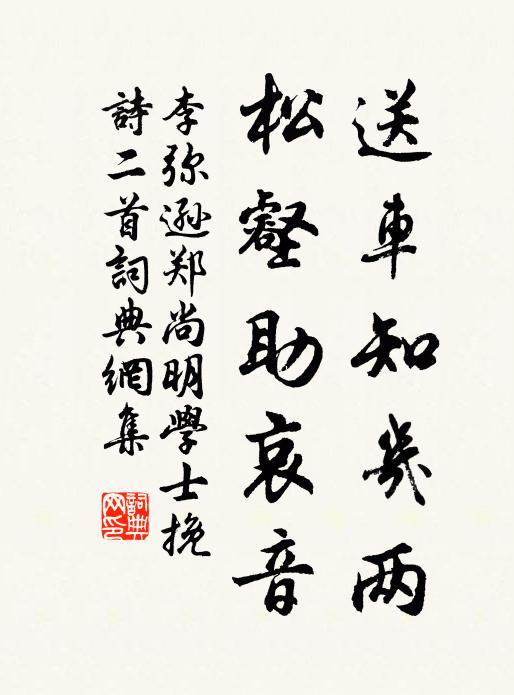 送車知幾兩
松壑助哀音
李弥遜郑尚明學士挽
詩二首詞典網集
詞典网印